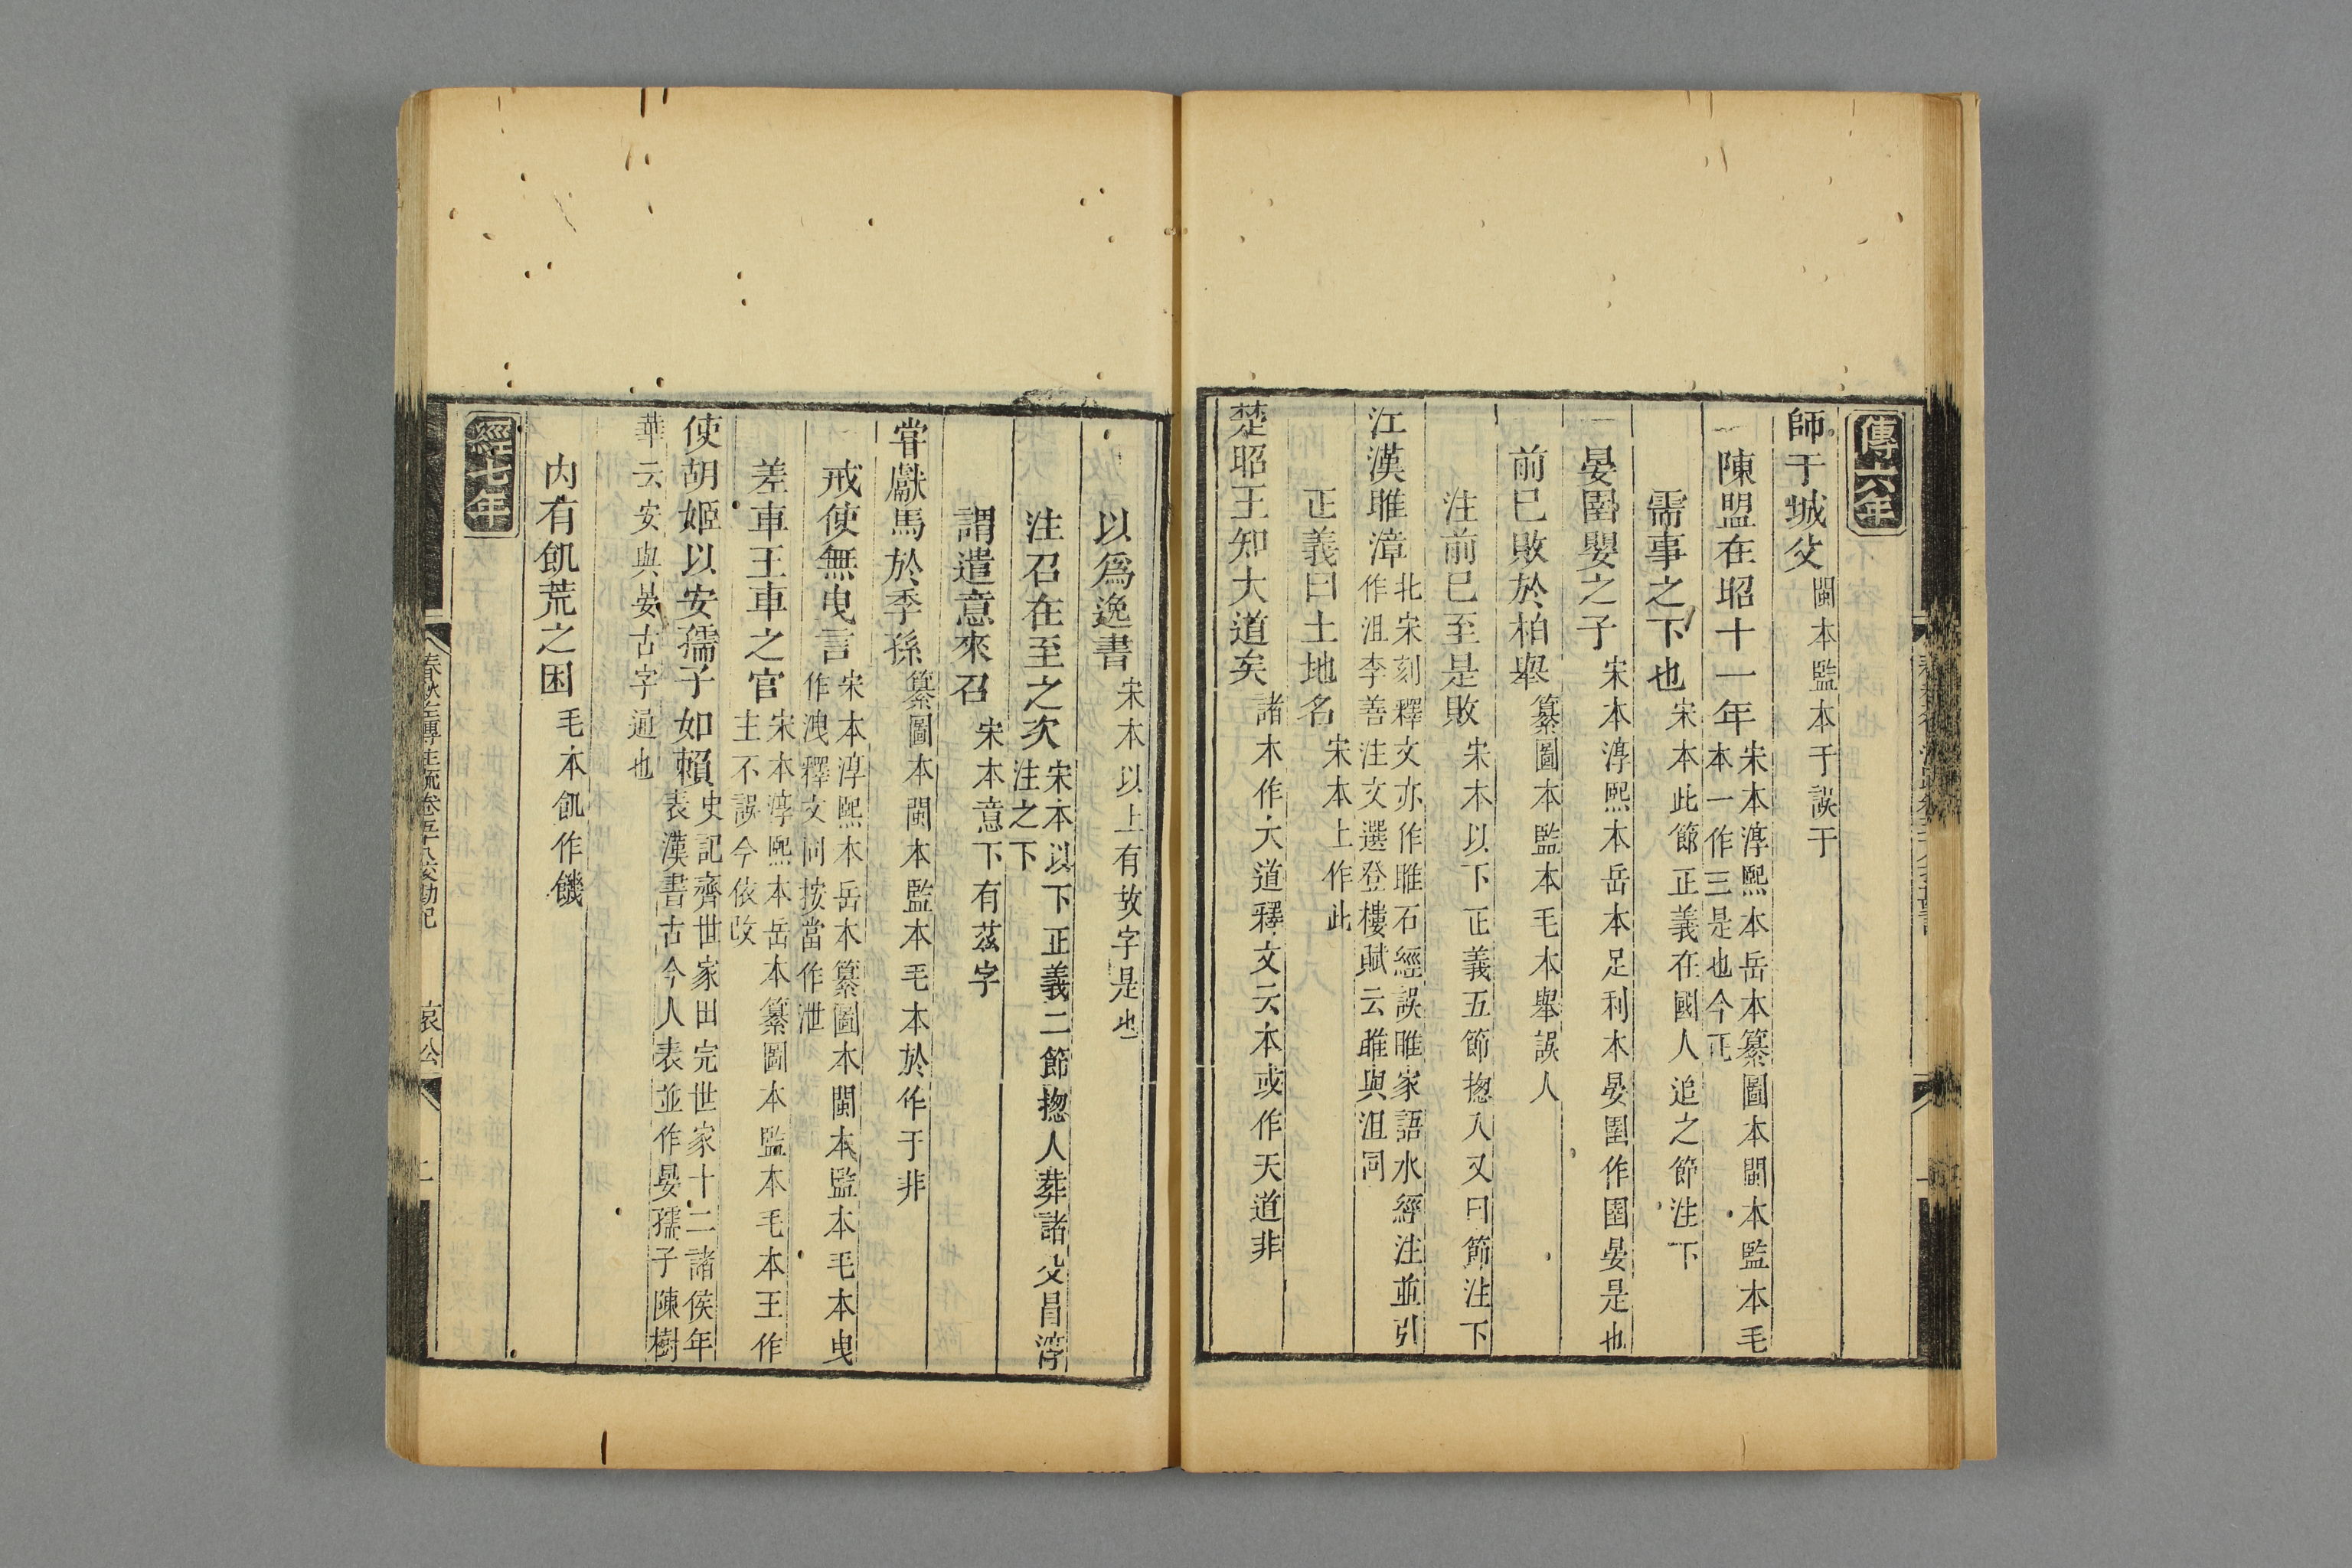 傳六年
師于城父閩本監本于誤于
陳盟在昭十一年宋本淳熙本岳本纂圖本閩本監本毛本一作三是也今正
需事之下也宋本此節正義在國人追之節注下
晏圉嬰之子宋本淳熙本岳本足利本晏圉作圉晏是也
前已敗於柏舉纂圖本監本毛本舉誤人
注前已至是敗宋本以下正義五節揔入又曰節注下
江漢雎漳北宋刻釋文亦作雎石經誤睢家語水經注並引作沮李善注文選登樓賦云雎與沮同
正義曰土地名宋本上作此
楚昭王知大道矣諸本作大道釋文云本或作天道非
以為逸書宋本以上有故字是也
注召在至之次宋本以下正義二節揔人葬諸殳冒淳注之下
謂遣意來召宋本意下有茲字
甞獻馬於季孫纂圖本閩本監本毛本於作于非
戒使無曳言宋本淳熙本岳本纂圖本閩本監本毛本曳作洩釋文同按當作泄
差車王車之官宋本淳熙本岳本纂圖本監本毛本王作主不誤今依改
使胡姬以安孺子如賴史記齊世家田完世家十二諸侯年表漢書古今人表並作晏孺子陳樹
華云安與晏古字通也
内有飢荒之困毛本飢作饑
經七年
春秋左傳注疏卷五十八校勘記 哀公 二